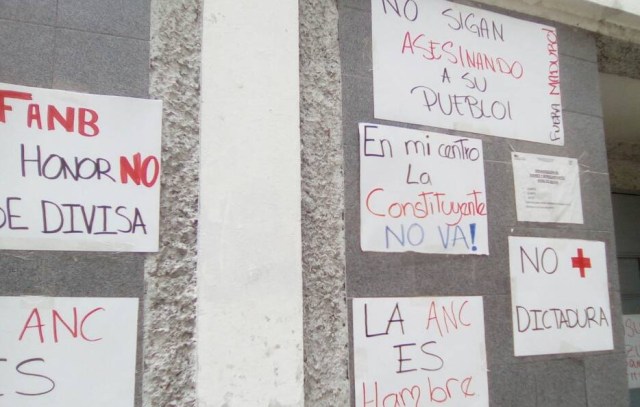 FANB
HONOR NO
SE DIVISA
ANC
ES
NO SIGAN
ASESINANDO
A SU
PUEBLO!
FUERA MADURO!
En mi centro
La
Constituyente
NO VA!
NO +
DICTADURA
LA ANC
ES
Hambre